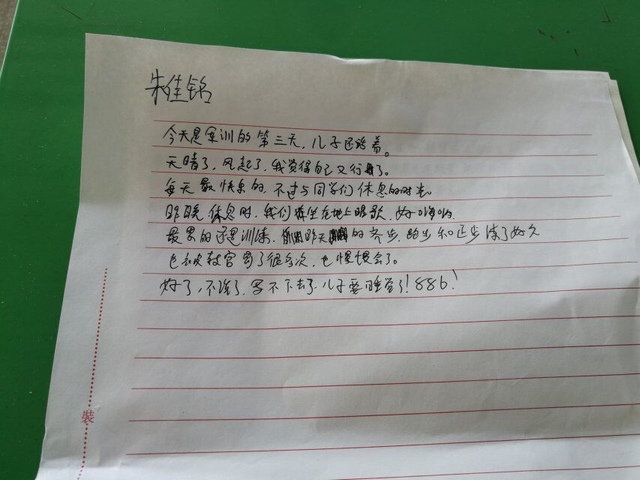 朱佳铭
今天是军训的第三天,儿子还活着。
天晴了,风起了,我觉得自己又行了。
每天最快乐的,不过与同学们休息的时光。
昨晚休息时,我们坐在地上唱歌,好嗨啊。
最累的还是训练,昨天的齐步,跑步和正步练了好久
也被教官骂了很多次,也慢慢会了。
好了,不说了,写不下去了,儿子要睡着了!886!
裝